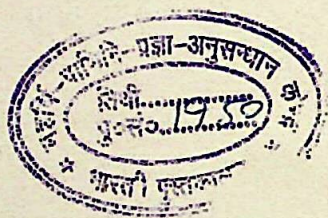 महर्षि-पाणिनि-प्रज्ञा-अनुसन्धान केन्द्र
तिथी..............
पु०सं०
* भारती पुस्तकालय *